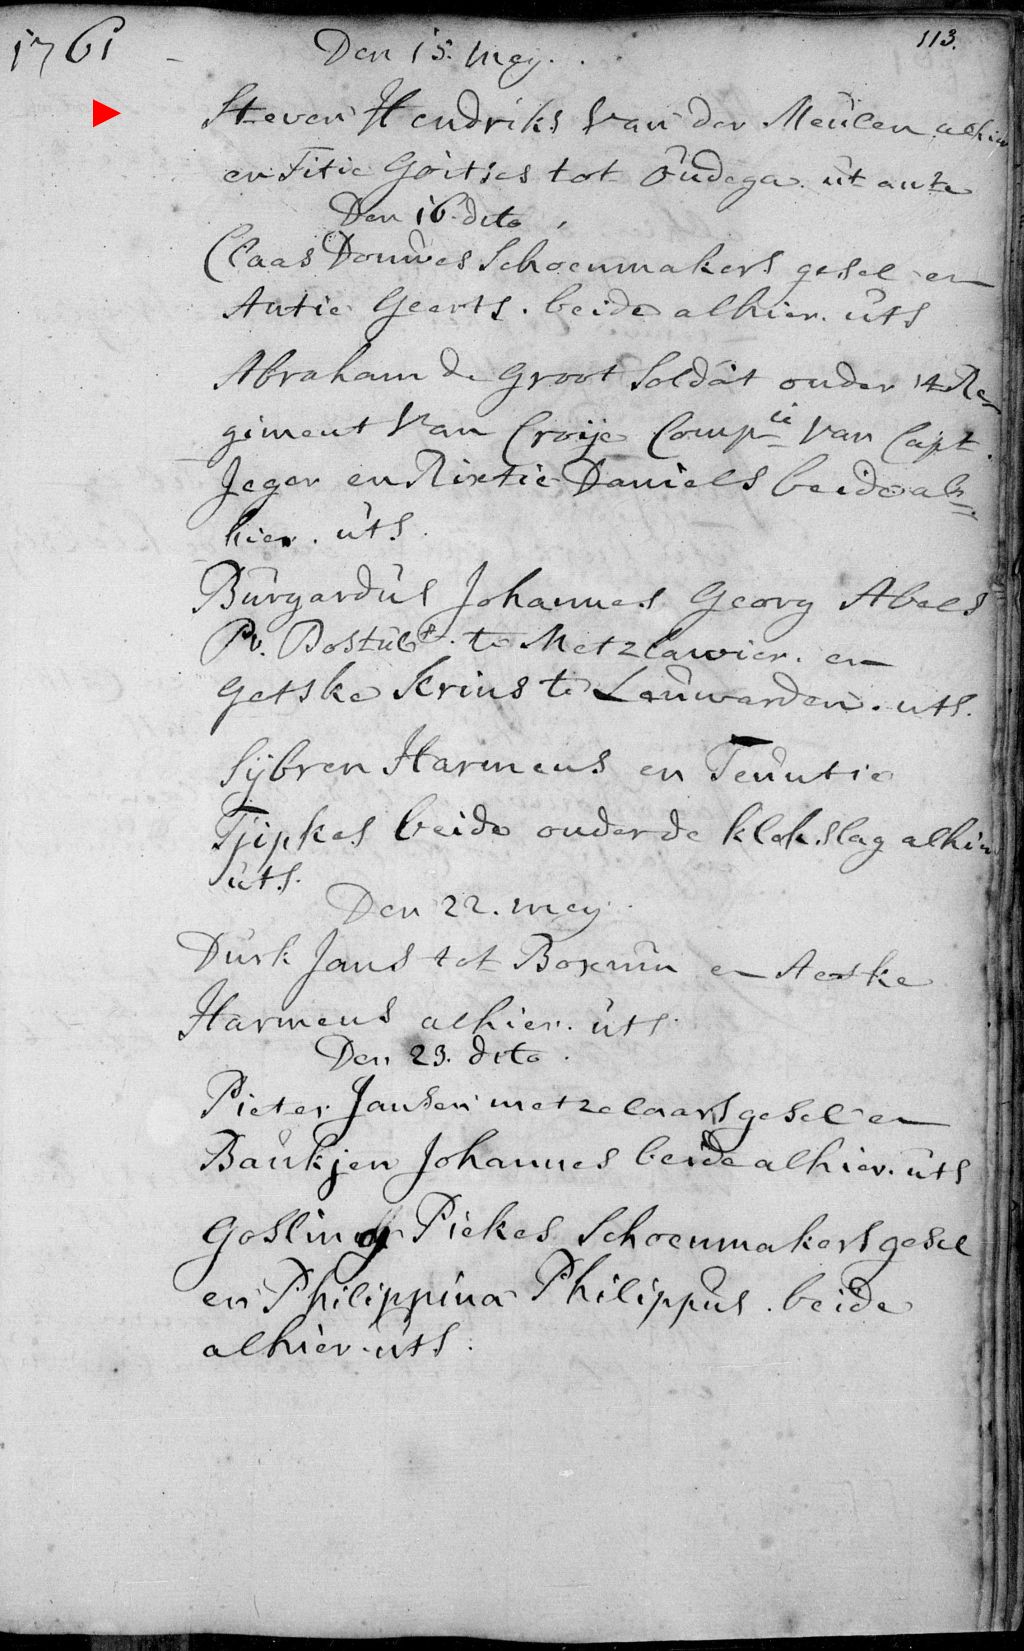 1761
113.
Den 15. mey.
Steven Hendriks Van der Meulen alhier
en Fitie Goitses tot Oudega. ut ante
Den 16. dito
Claas Douwes Schoenmakers gesel en
Antie Geerts. beide alhier. uts
Abraham de Groot Soldat onder 't Re
giment Van Croije Compie Van Capt.
Jeger en Rixtie Daniels beide al=
hier. uts.
Burgardus Johannes Georg Abels
te Metzlawier. en
Getske Krins te Leuwarden. uts.
Sijbren Harmens en Teuntie
Tjipkes beide onder de klokslag alhier
uts.
Den 22. mey
Durk Jans tot Boxum en Aeske
Harmens alhier. uts.
Den 23. dito.
Pieter Jansen metzelaarsgesel en
Baukjen Johannes beide alhier. uts
Gosling Piekes Schoenmakersgesel
en Philippina Philippus. beide
alhier. uts.